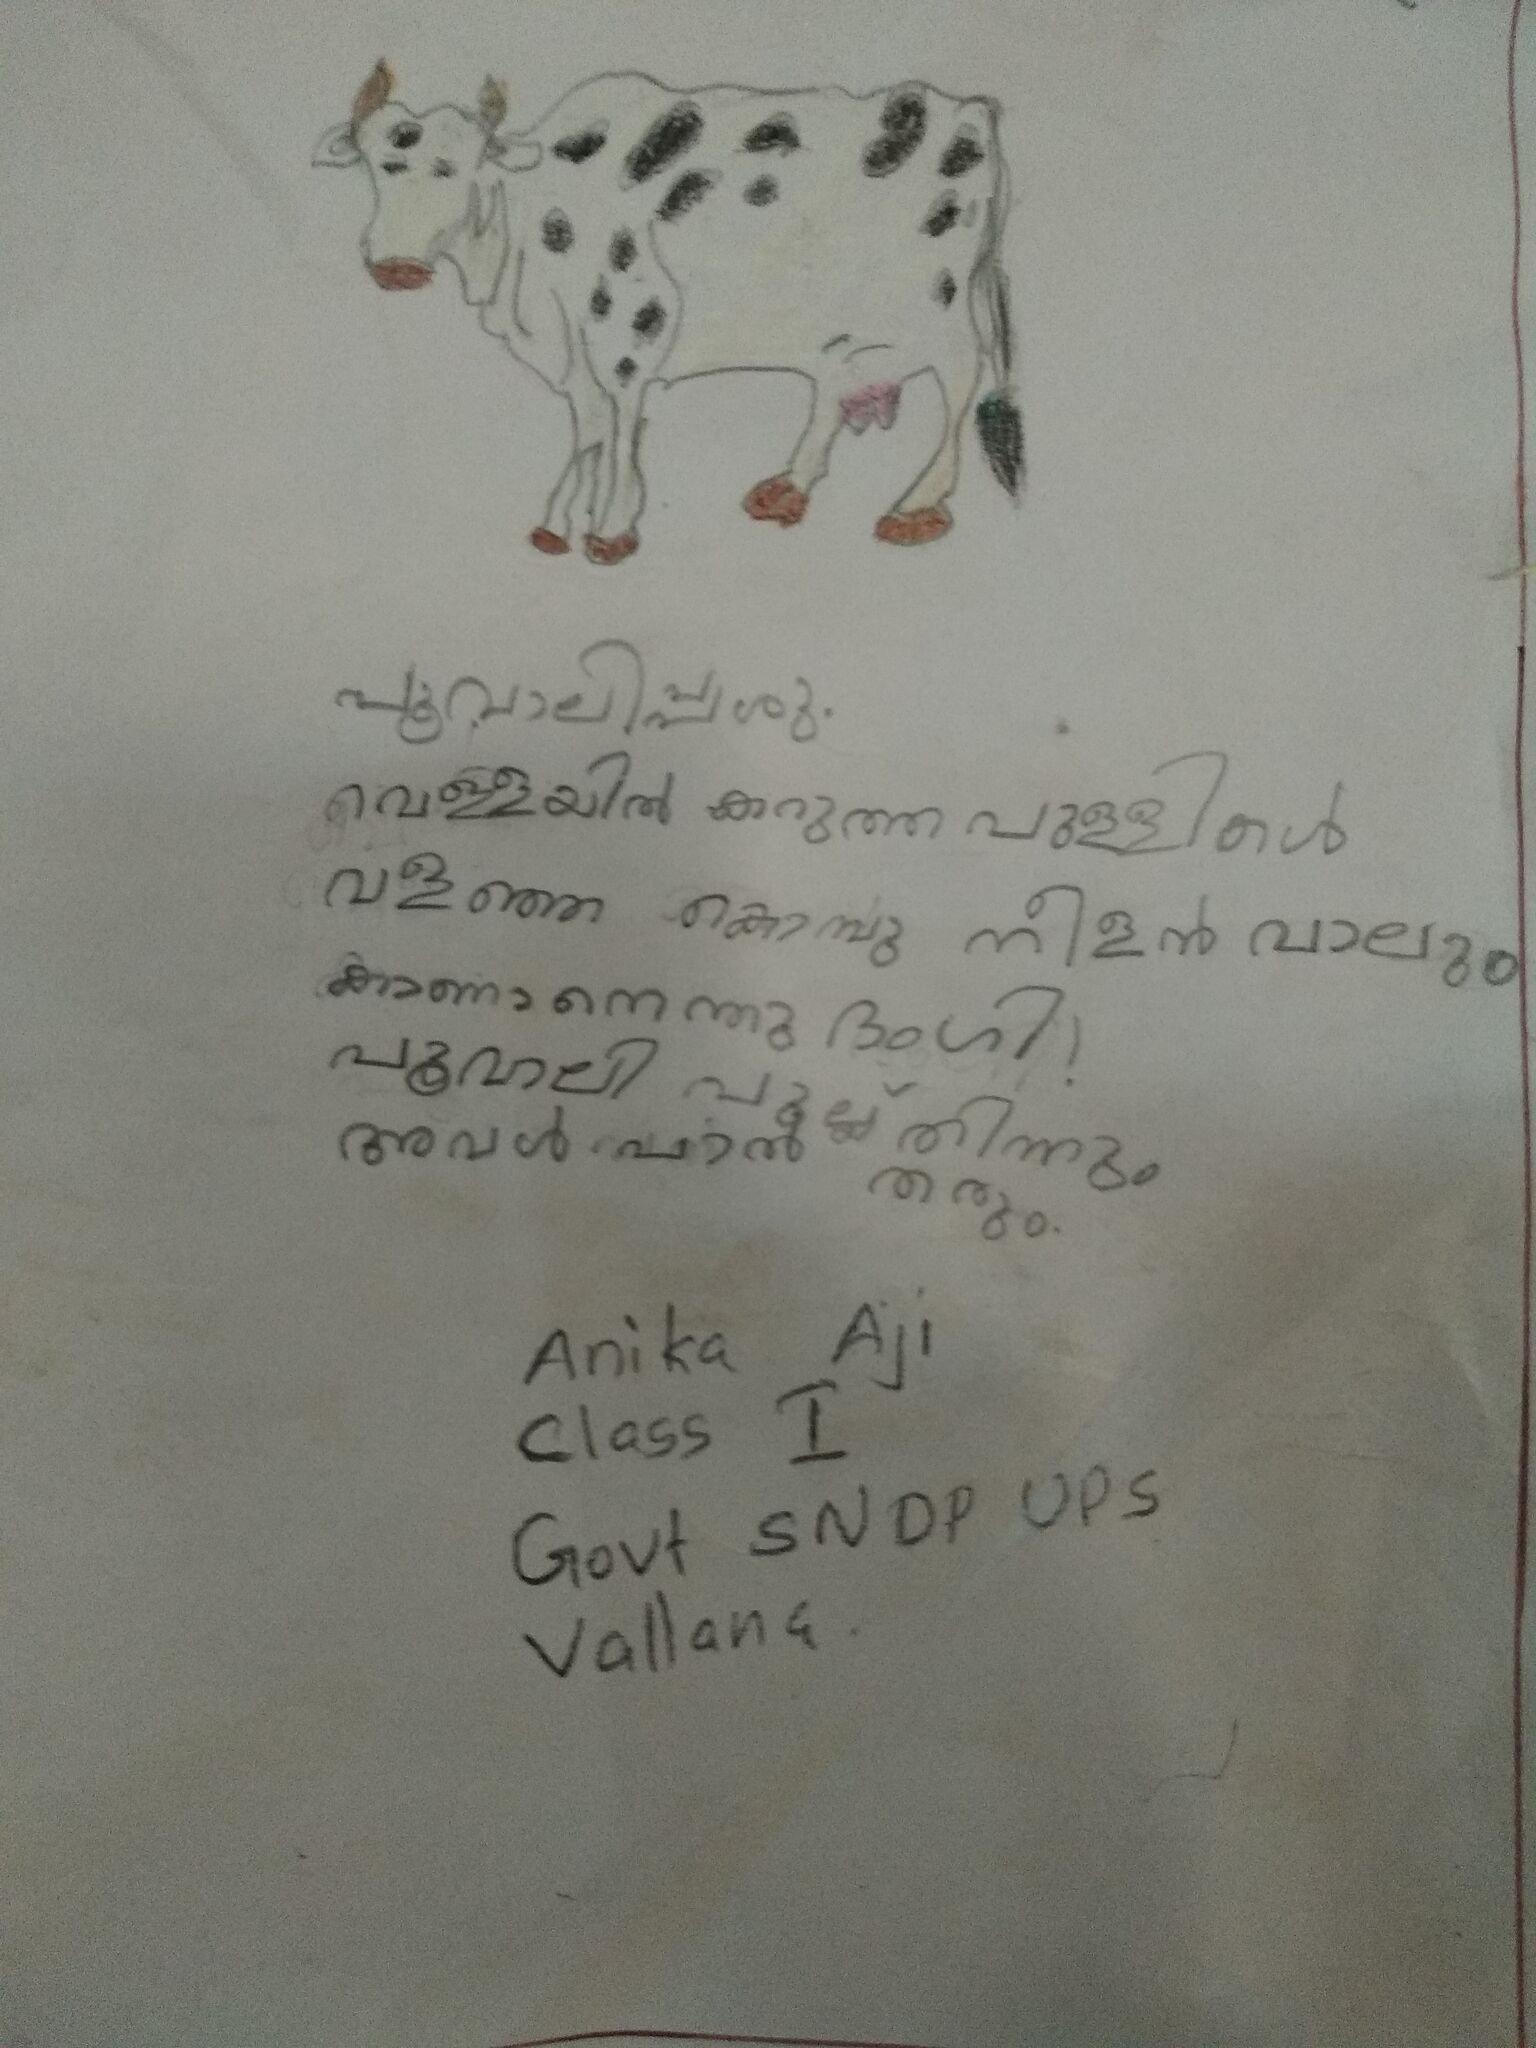 പൂവാലിപ്പശു.
വെള്ളയിൽ കറുത്ത പുള്ളികൾ
വളഞ്ഞ കൊമ്പു നീളൻ വാലും
കാണാനെന്തു ഭംഗി!
പൂവാലി പുല്ല് തിന്നും
അവൾ പാൽ തരും.
Anika Aji
Class I
Govt SNDP UPS
Vallana.